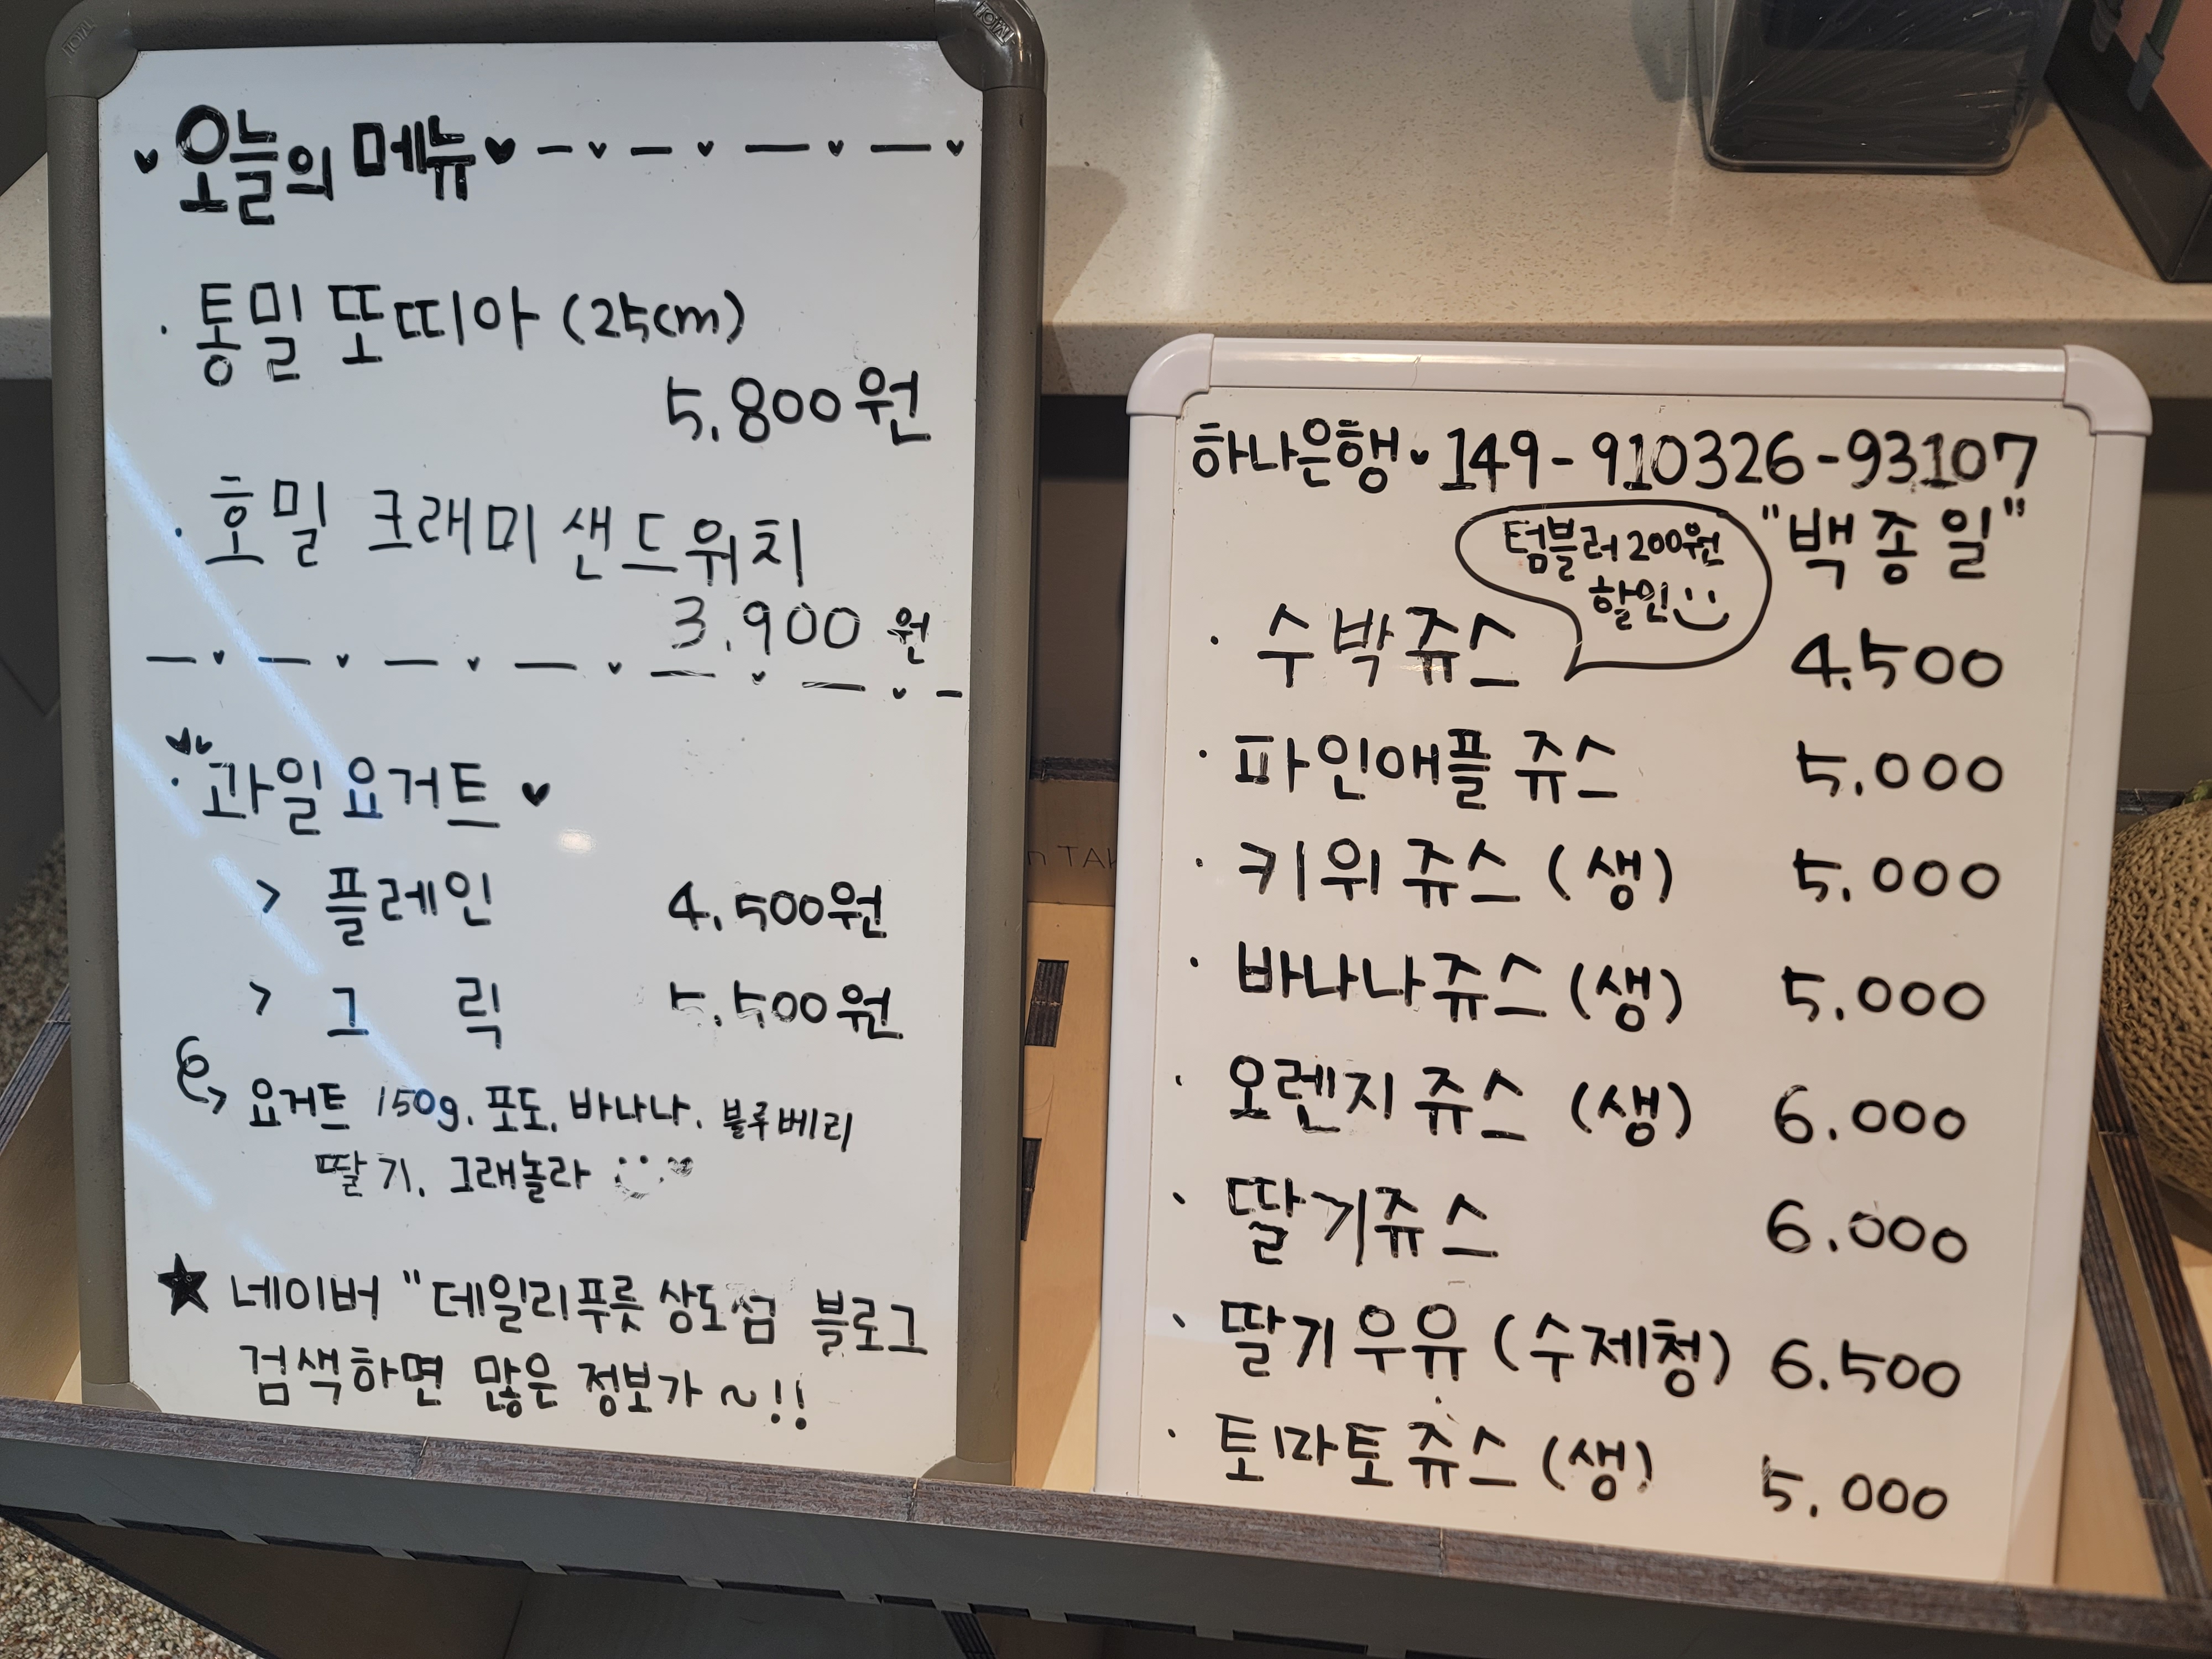 오늘의 메뉴
· 통밀 또띠아 (25cm)
5.800원
· 호밀 크래미 샌드위치
3.900원
· 과일요거트
> 플레인 4.500원
> 그릭 5.500원
요거트 150g. 포도. 바나나. 블루베리
딸기. 그래놀라
★ 네이버 "데일리푸릇 상도점 블로그
검색하면 많은 정보가 ~!!
하나은행 149-910326-93107
"백종일"
텀블러 200원
할인
· 수박쥬스 4.500
· 파인애플 쥬스 5.000
· 키위쥬스 (생) 5.000
· 바나나쥬스 (생) 5.000
· 오렌지 쥬스 (생) 6.000
· 딸기쥬스 6.000
· 딸기우유 (수제청) 6.500
· 토마토쥬스 (생) 5.000